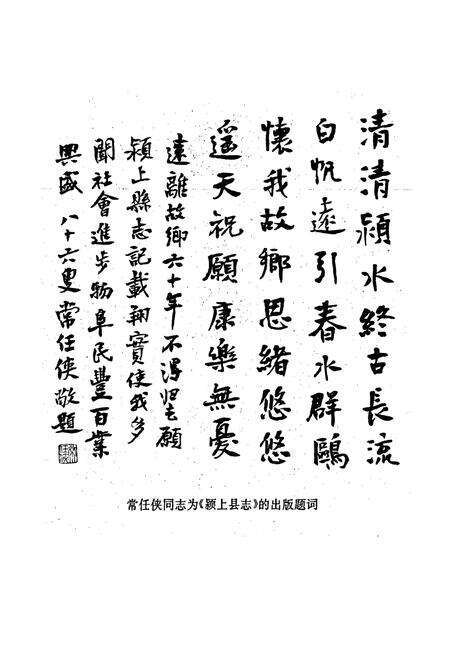 清清颍水终古長流
白帆遠引春水群鷗
懷我故鄉思緒悠悠
遥天祝願康樂無憂
遠離故鄉六十年不得归去願
颍上縣志記載翔實使我多
聞社會進步物阜民豐百業
興盛 八十六叟常任侠敬題
常任侠同志为《颍上县志》的出版题词